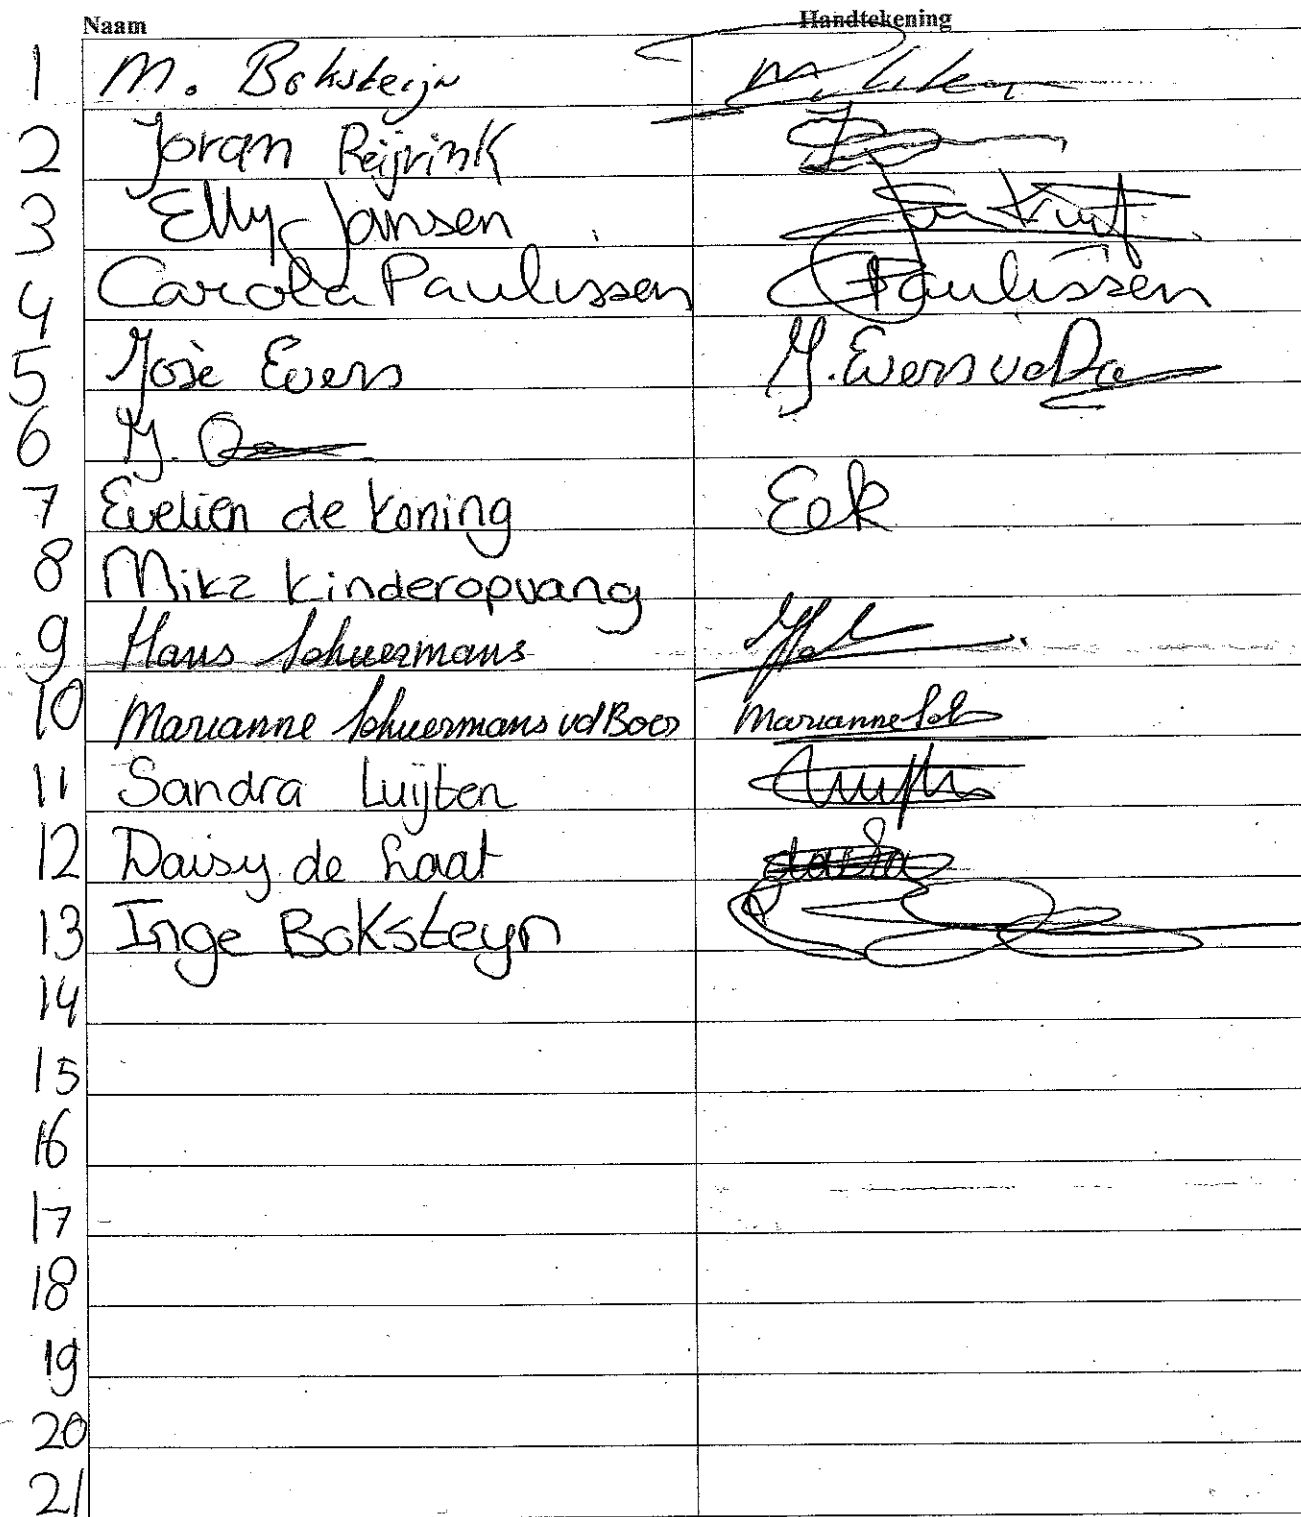 Naam Handtekening
1 M. Boksteijn
2 Joran Reijrink
3 Elly Jansen
4 Carola Paulissen CPaulissen
5 Josè Evers J. Evers vd
6 J.
7 Evelien de Koning Eek
8 Mikz kinderopvang
9 Hans Schuermans
10 Marianne Schuermans vd Boer Marianne
11 Sandra Luijten
12 Daisy de Laat
13 Inge Boksteyn
14
15
16
17
18
19
20
21